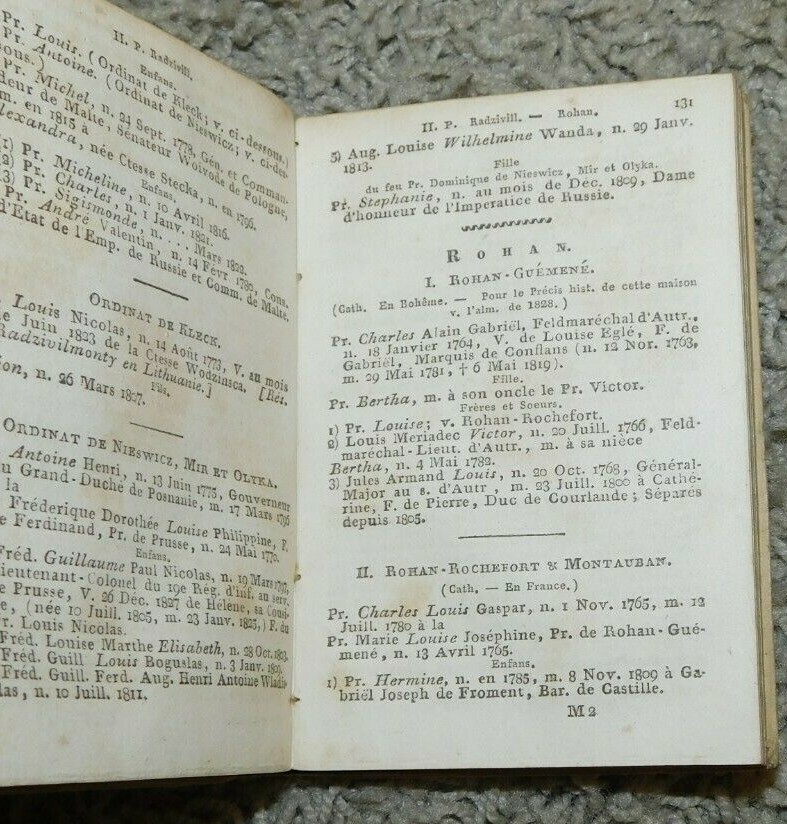 II. P. Radzivill.
Pr. Louis. (Ordinat de Kleck; v. ci-dessous.)
Pr. Antoine. (Ordinat de Nieswicz; v. ci-des-
sous.)
Enfans.
Pr. Michel, n. 24 Sept. 1778, Gén. et Comman-
deur de Malte, Sénateur Woivode de Pologne,
m. en 1815 à
Alexandra, née Ctesse Stecka, n. en 1796.
Enfans.
1) Pr. Micheline, n. 10 Avril 1816.
2) Pr. Charles, n. 1 Janv. 1821.
3) Pr. Sigismonde, n. ... Mars 1822.
Pr. André Valentin, n. 14 Févr. 1780, Cons.
d'État de l'Emp. de Russie et Comm. de Malte.
ORDINAT DE KLECK.
Louis Nicolas, n. 14 Août 1773, V. au mois
de Juin 1823 de la Ctesse Wodzinsca. [Rés.
Radzivilmonty en Lithuanie.]
Fils.
n. 26 Mars 1827.
ORDINAT DE NIESWICZ, MIR ET OLYKA.
Antoine Henri, n. 13 Juin 1775, Gouverneur
du Grand-Duché de Posnanie, m. 17 Mars 1796
à la
Fréderique Dorothée Louise Philippine, F.
de Ferdinand, Pr. de Prusse, n. 24 Mai 1770.
Enfans.
Fréd. Guillaume Paul Nicolas, n. 19 Mars 1797,
Lieutenant-Colonel du 19e Rég. d'inf. au serv.
de Prusse, V. 26 Déc. 1827 de Hélène, sa Cousi-
ne, (née 10 Juill. 1805, m. 23 Janv. 1825,) F. du
Pr. Louis Nicolas.
Fréd. Louise Marthe Elisabeth, n. 28 Oct. 1803.
Fréd. Guill Louis Boguslas, n. 3 Janv. 1809.
Fréd. Guill. Ferd. Aug. Henri Antoine Wladis-
las, n. 10 Juill. 1811.
II. P. Radzivill. — Rohan. 131
5) Aug. Louise Wilhelmine Wanda, n. 29 Janv.
1813.
Fille
du feu Pr. Dominique de Nieswicz, Mir et Olyka.
Pr. Stephanie, n. au mois de Déc. 1809, Dame
d'honneur de l'Imperatice de Russie.
ROHAN.
I. ROHAN-GUÉMENÉ.
(Cath. En Bohême. — Pour le Précis hist. de cette maison
v. l'alm. de 1828.)
Pr. Charles Alain Gabriël, Feldmaréchal d'Autr.,
n. 18 Janvier 1764, V. de Louise Eglé, F. de
Gabriël, Marquis de Conflans (n. 12 Nov. 1763,
m. 29 Mai 1781, † 6 Mai 1819).
Fille.
Pr. Bertha, m. à son oncle le Pr. Victor.
Frères et Soeurs.
1) Pr. Louise; v. Rohan-Rochefort.
2) Louis Meriadec Victor, n. 20 Juill. 1766, Feld-
maréchal-Lieut. d'Autr., m. à sa nièce
Bertha, n. 4 Mai 1782.
3) Jules Armand Louis, n. 20 Oct. 1768, Général-
Major au s. d'Autr, m. 23 Juill. 1800 à Cathé-
rine, F. de Pierre, Duc de Courlande; Séparés
depuis 1805.
II. ROHAN-ROCHEFORT & MONTAUBAN.
(Cath. — En France.)
Pr. Charles Louis Gaspar, n. 1 Nov. 1765, m. 12
Juill. 1780 à la
Pr. Marie Louise Joséphine, Pr. de Rohan-Gué-
mené, n. 13 Avril 1765.
Enfans.
1) Pr. Hermine, n. en 1785, m. 8 Nov. 1809 à Ga-
briël Joseph de Froment, Bar. de Castille.
M 2